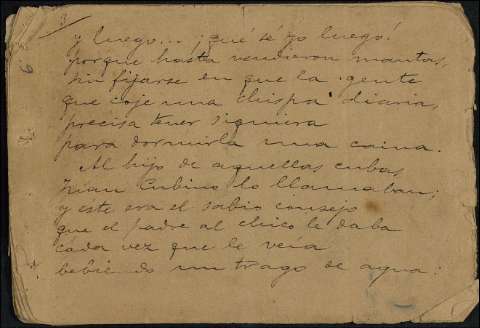 y luego... ¡qué sé yo luego!
porque hasta vendieron mantas,
sin fijarse en que la gente
que coje una chispa diaria,
precisa tener siquiera
para dormirla una cama.
Al hijo de aquellas cubas,
Cubino lo llamaban;
y este era el sabio consejo
que el padre al chico le daba
cada vez que le veia
bebiendo un trago de agua: